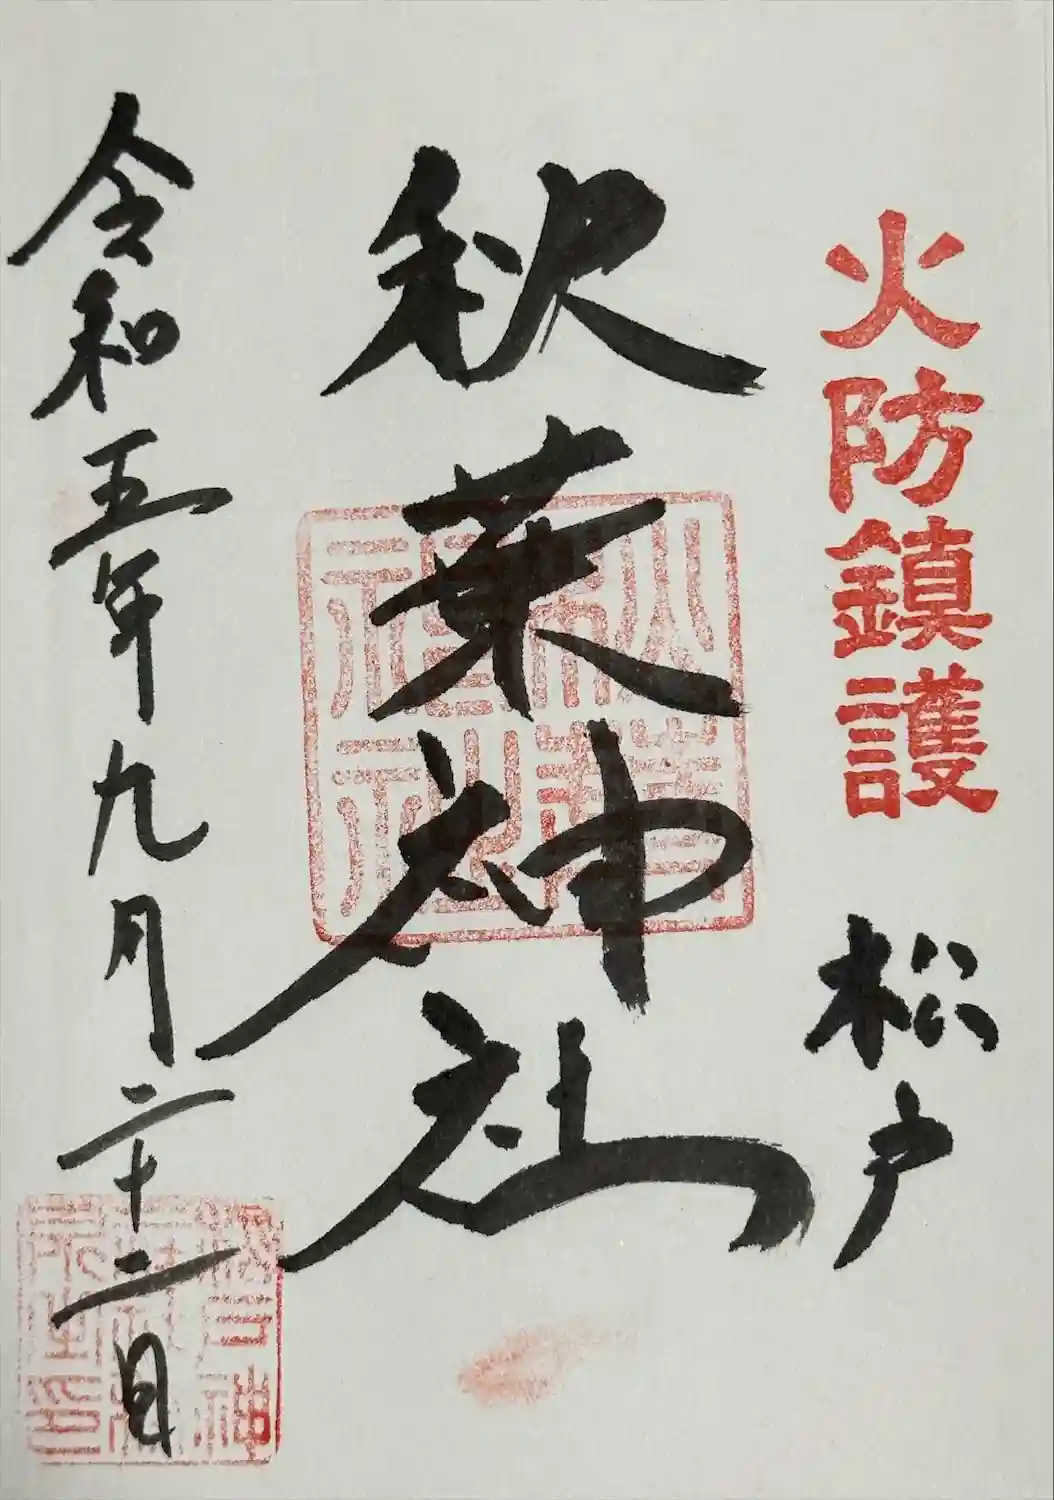 火防鎮護
松戸
秋葉神社
令和五年九月二十二日